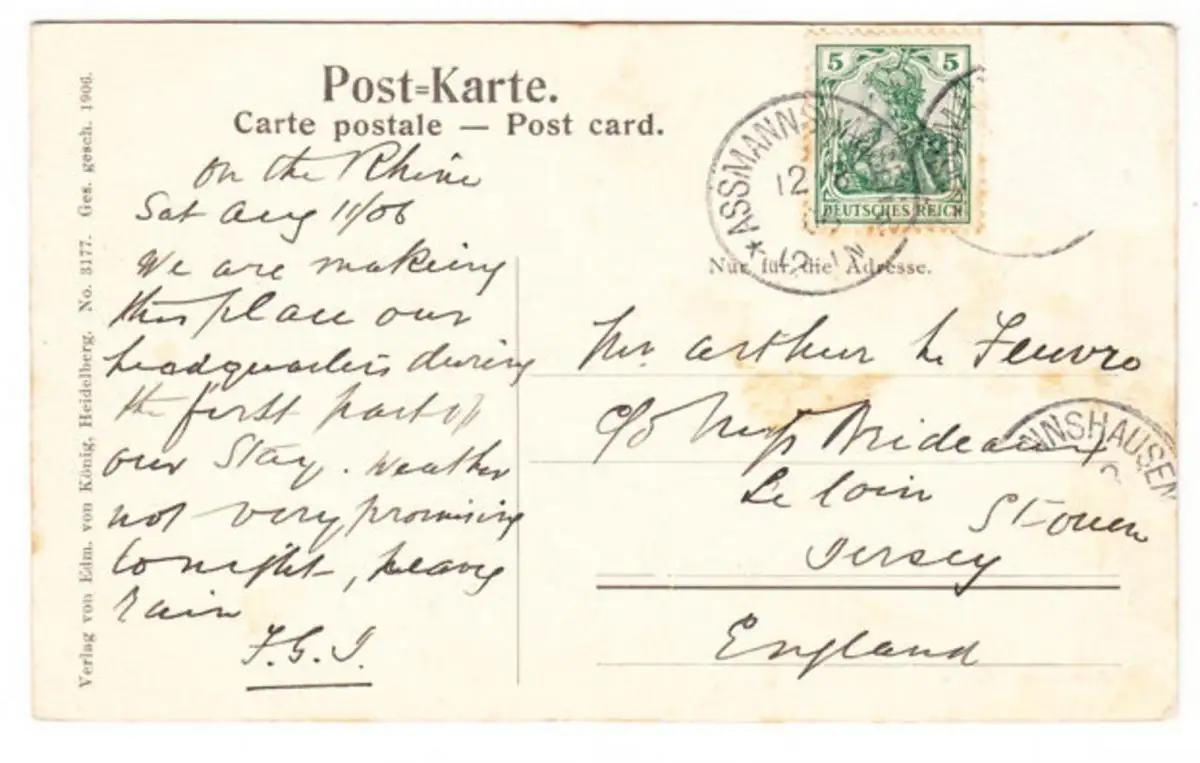 Post=Karte.
Carte postale — Post card.
On the Rhine
Sat Aug 11/06
We are making
this place our
headquarters during
the first part of
our stay. Weather
not very promising
tonight, heavy
rain
F.G.I.
Verlag von Edm. von König, Heidelberg. No. 3177. Ges. gesch. 1906.
5 5
DEUTSCHES REICH
ASSMANNS
12
12 - 1 N
Nur für die Adresse.
Mr Arthur Le Feuvre
c/o Miss
NNSHAUSEN
Le loin St-Ouen
Jersey
England